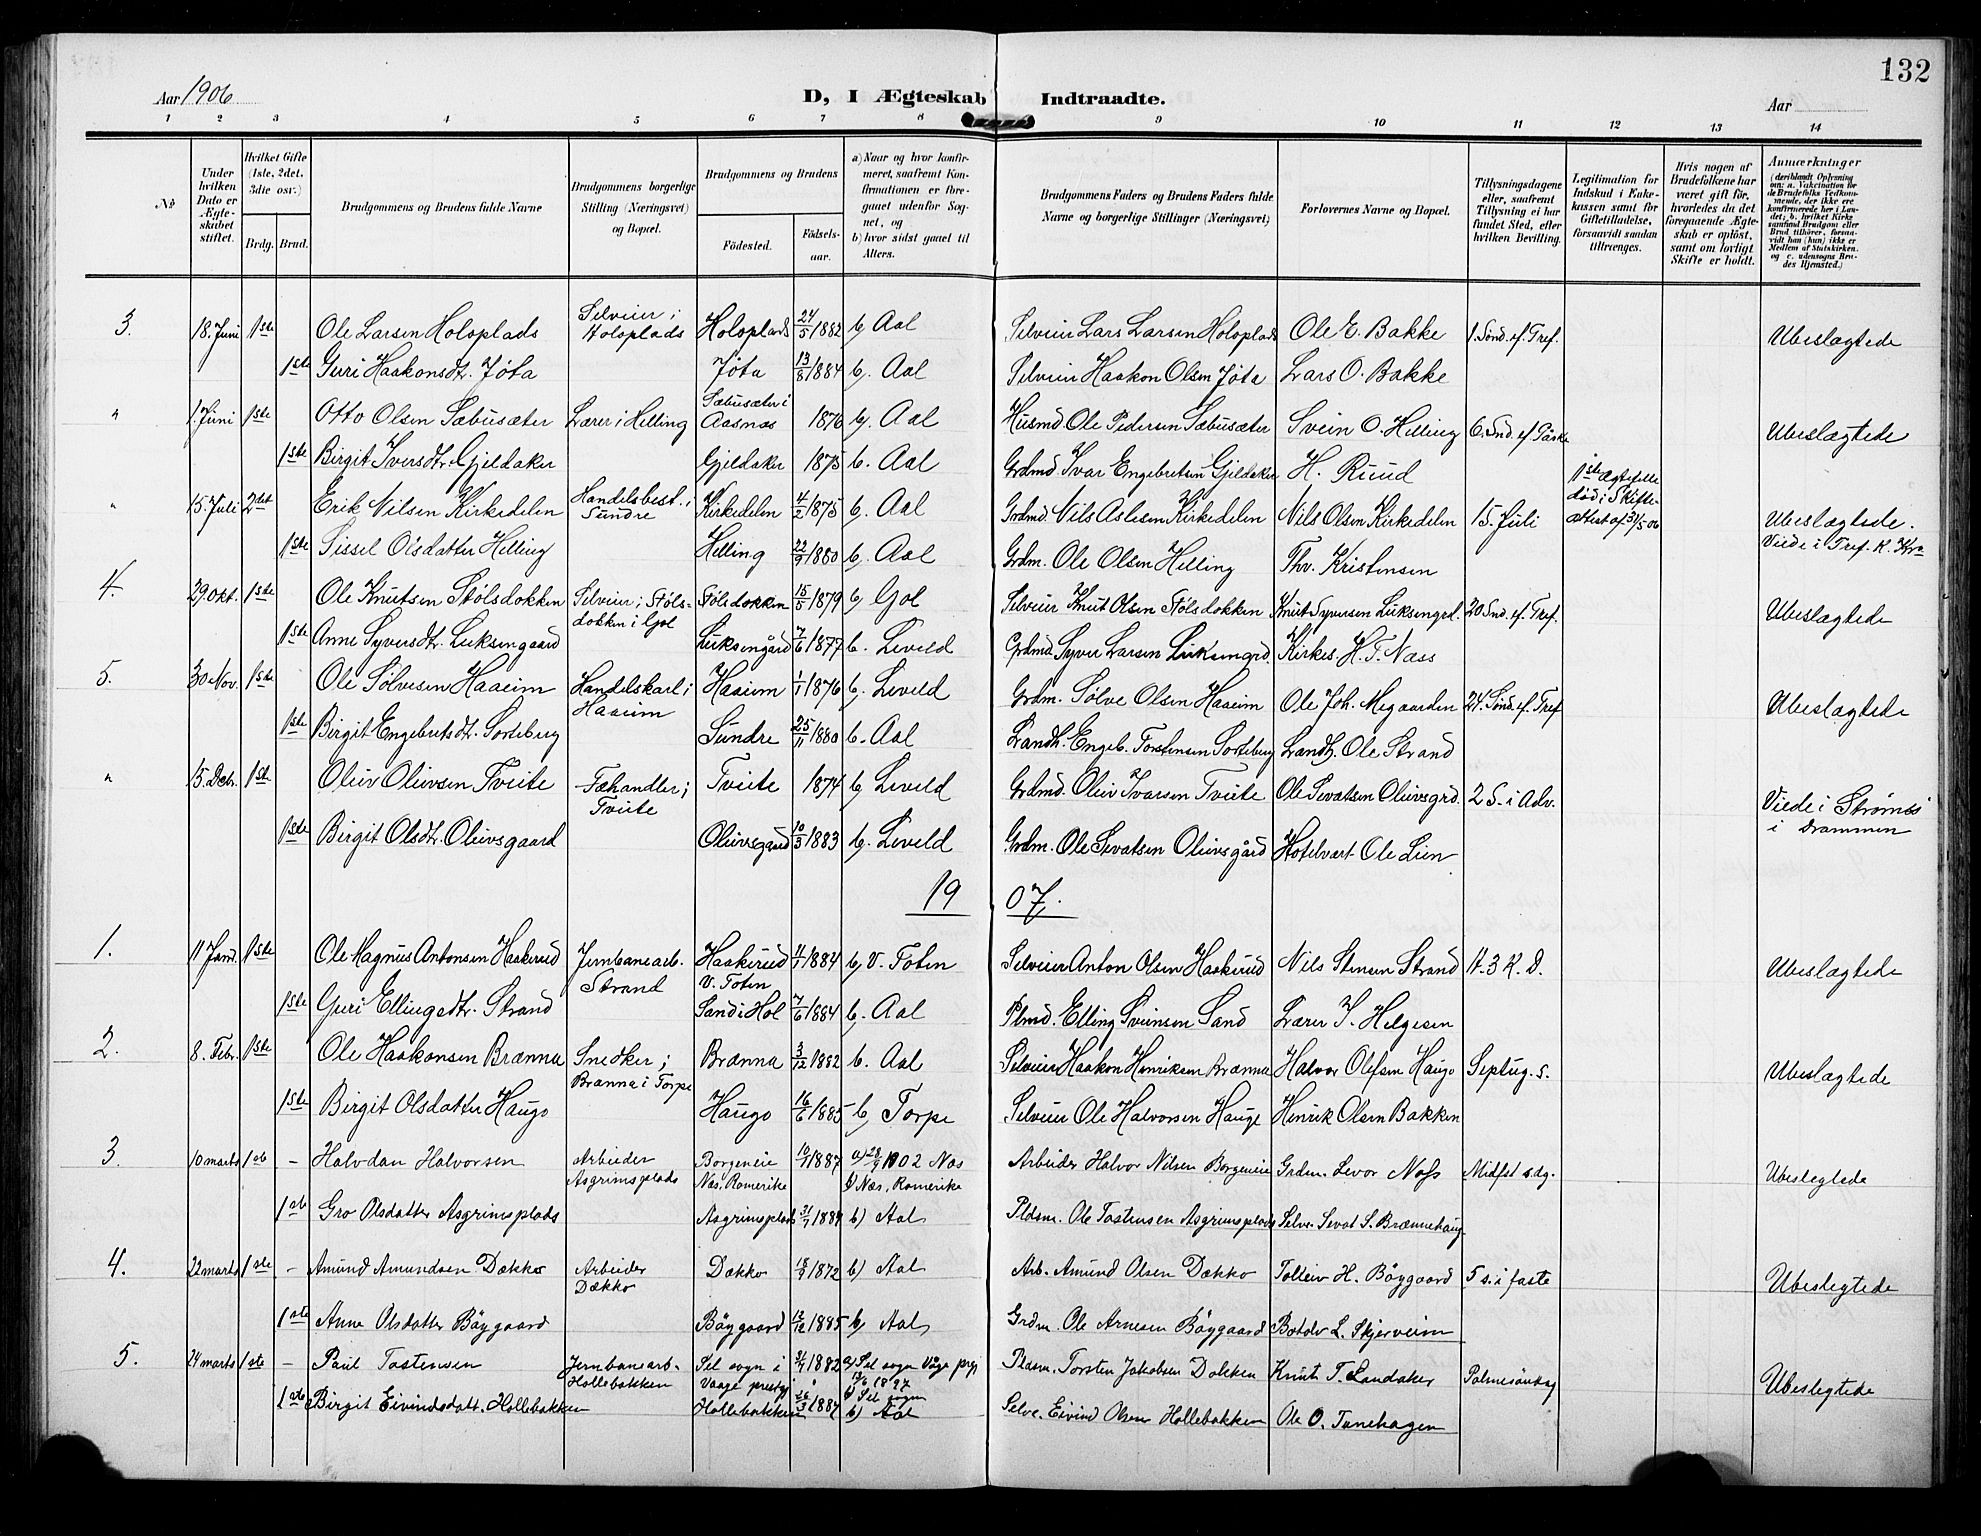 132
Aar 1906
D, I Ægteskab Indtraadte.
Aar
1 2 3 4 5 6 7 8 9 10 11 12 13 14
№
Under hvilken Dato er Ægteskabet stiftet.
Hvilket Gifte (1ste, 2det, 3die osv.)
Brdg. Brud.
Brudgommens og Brudens fulde Navne
Brudgommens borgerlige Stilling (Næringsvei) og Bopæl.
Brudgommens og Brudens
Fødested.
Fødselsaar.
a) Naar og hvor konfirmeret, saafremt Konfirmationen er foregaaet udenfor Sognet, og
b) hvor sidst gaaet til Alters.
Brudgommens Faders og Brudens Faders fulde Navne og borgerlige Stillinger (Næringsvei)
Forlovernes Navne og Bopæl.
Tillysningsdagene eller, saafremt Tillysning ei har fundet Sted, efter hvilken Bevilling.
Legitimation for Indskud i Enkekassen samt for Giftetilladelse, forsaavidt saadan tiltrænges.
Hvis nogen af Brudefolkene har været gift før, hvorledes da det foregaaende Ægteskab er opløst, samt om lovligt Skifte er holdt.
Anmærkninger
(deriblandt Oplysning om: a. Vakcination for de Brudefolks Vedkommende, der ikke ere konfirmerede her i Landet; b. hvilket Kirkesamfund Brudgom eller Brud tilhører, forsaavidt han (hun) ikke er Medlem af Statskirken, og c. udensogns Brudes Hjemsted.)
3. 18. Juni 1ste Ole Larsen Holoplads Selveier i Holoplads Holoplads 24/5 1882 b, Aal Selveier Lars Larsen Holoplads Ole E. Bakke 1. Sønd. ef. Tref. Ubeslægtede
1ste Guri Haakonsdtr. Jøta Jøta 13/8 1884 b, Aal Selveier Haakon Olsen Jøta Lars O. Bakke
" 1. Juni 1ste Otto Olsen Sæbusæter Lærer i Helling Sæbusæter i Aasnæs 1876 b, Aal Husmd Ole Pedersen Sæbusæter Svein O. Helling 6. Snd. ef. Paaske Ubeslægtede
1ste Birgit Iversdtr. Gjeldaker Gjeldaker 1875 b. Aal Grdmd. Ivar Engebretsen Gjeldaker H. Ruud
" 15. Juli 2det Erik Nilsen Kirkedelen Handelsbest. i Sundre Kirkedelen 4/2 1875 b. Aal Grdmd. Nils Aslesen Kirkedelen Nils Olsen Kirkedelen 15. Juli 1ste Ægtefelle død i Skifteattest af 31/5 06 Ubeslægtede. Viede i Tref. K. Kra
1ste Sissel Olsdatter Helling Helling 22/9 1880 b, Aal Grdm. Ole Olsen Helling Thv. Kristensen
4. 29. Okt. 1ste Ole Knutsen Stølsdokken Selveier i Stølsdokken i Gol Stølsdokken 15/5 1879 b, Gol Selveier Knut Olsen Stølsdokken Knut Syversen Luksengrd. 20 Snd. ef. Tref. Ubeslægtede
1ste Anne Syversdtr. Luksengaard Luksengård 7/6 1877 b. Leveld Grdmd. Syver Larsen Luksengrd. Kirkes. H. T. Næss
5. 30 Nov. 1ste Ole Sølvesen Haaeim Handelskarl i Haaeim Haaeim 1/1 1876 b, Leveld Grdm. Sølve Olsen Haaeim Ole Joh. Megaarden 24. Sønd. ef. Tref Ubeslægtede
1ste Birgit Engebretsdtr. Sorteberg Sundre 25/11 1880 b. Aal Landh. Engeb. Torstensen Sorteberg Landh. Ole Strand
" 15. Decbr. 1ste Oleiv Oleivsen Tveite Fæhandler i Tveite Tveite 1874 b, Leveld Grdmd. Oleiv Ivarsen Tveite Ole Sevatsen Oleivsgrd. 2 S. i Adv. Viede i Strømsø i Drammen
1ste Birgit Olsdtr. Oleivsgaard Oleivsgaard 10/3 1883 b, Leveld Grdm. Ole Sevatsen Oleivsgård Hotelvært Ole Lien
1907.
1. 11 Jand. 1ste Ole Magnus Antonsen Haakerud Jernbanearb. Strand Haakerud V. Toten 4/1 1884 b, V. Toten Selveier Anton Olsen Haakerud Nils Stensen Strand H. 3 K. D. Ubeslægtede
1ste Guri Ellingsdtr. Strand Sand i Hol 7/6 1884 b, Aal Plmd. Elling Sveinsen Sand Lærer S. Helgesen
2. 8. Febr. 1ste Ole Haakonsen Brænna Snedker i Brænna i Torpe Brænna 3/12 1882 b. Aal Selveier Haakon Henriksen Brænna Halvor Olesen Haugo Septug. s. Ubeslægtede
1ste Birgit Olsdatter Haugo Haugo 16/6 1885 b, Torpe Selveier Ole Halvorsen Hauge Henrik Olsen Bakken
3. 10 marts 1ste – Halvdan Halvorsen Arbeider Asgrimsplads Borgeneie Næs, Romerike 10/1 1887 a) 28/9 1902 Næs b) Næs, Romerike Arbeider Halvor Nilsen Borgeneie Grdm. Levor Næss Midfst sdg. Ubeslegtede
1ste Gro Olsdatter Asgrimsplads Asgrimsplads 31/1 1884 b) Aal Pldsm. Ole Tostensen Asgrimsplads Selve. Sevat S. Brænnehaug
4. 22 marts 1ste – Amund Amundsen Dækko Arbeider Dækko Dækko 18/9 1872 b) Aal Arb. Amund Olsen Dækko Tolleiv H. Bøygaard 5 s. i faste Ubeslegtede
1ste Anne Olsdatter Bøygaard Bøygaard 12/12 1885 b) Aal Grdm. Ole Arnesen Bøygaard Botolv L. Skjerveim
5. 24 marts 1ste – Paul Tostensen Jernbanearb. Hollebakken Sel sogn i Vaage prestgj 3/7 1882 a) Sel sogn Våge prgj 13/6 1897 b) Sel sogn Pldsm. Torsten Jakobsen Dokken Knut T. Landaker Palmesøndag Ubeslegtede
1ste Birgit Eivindsdatt. Hollebakken Hollebakken 26/3 1884 b) Aal Selve. Eivind Olsen Hollebakken Ole O. Tunehagen